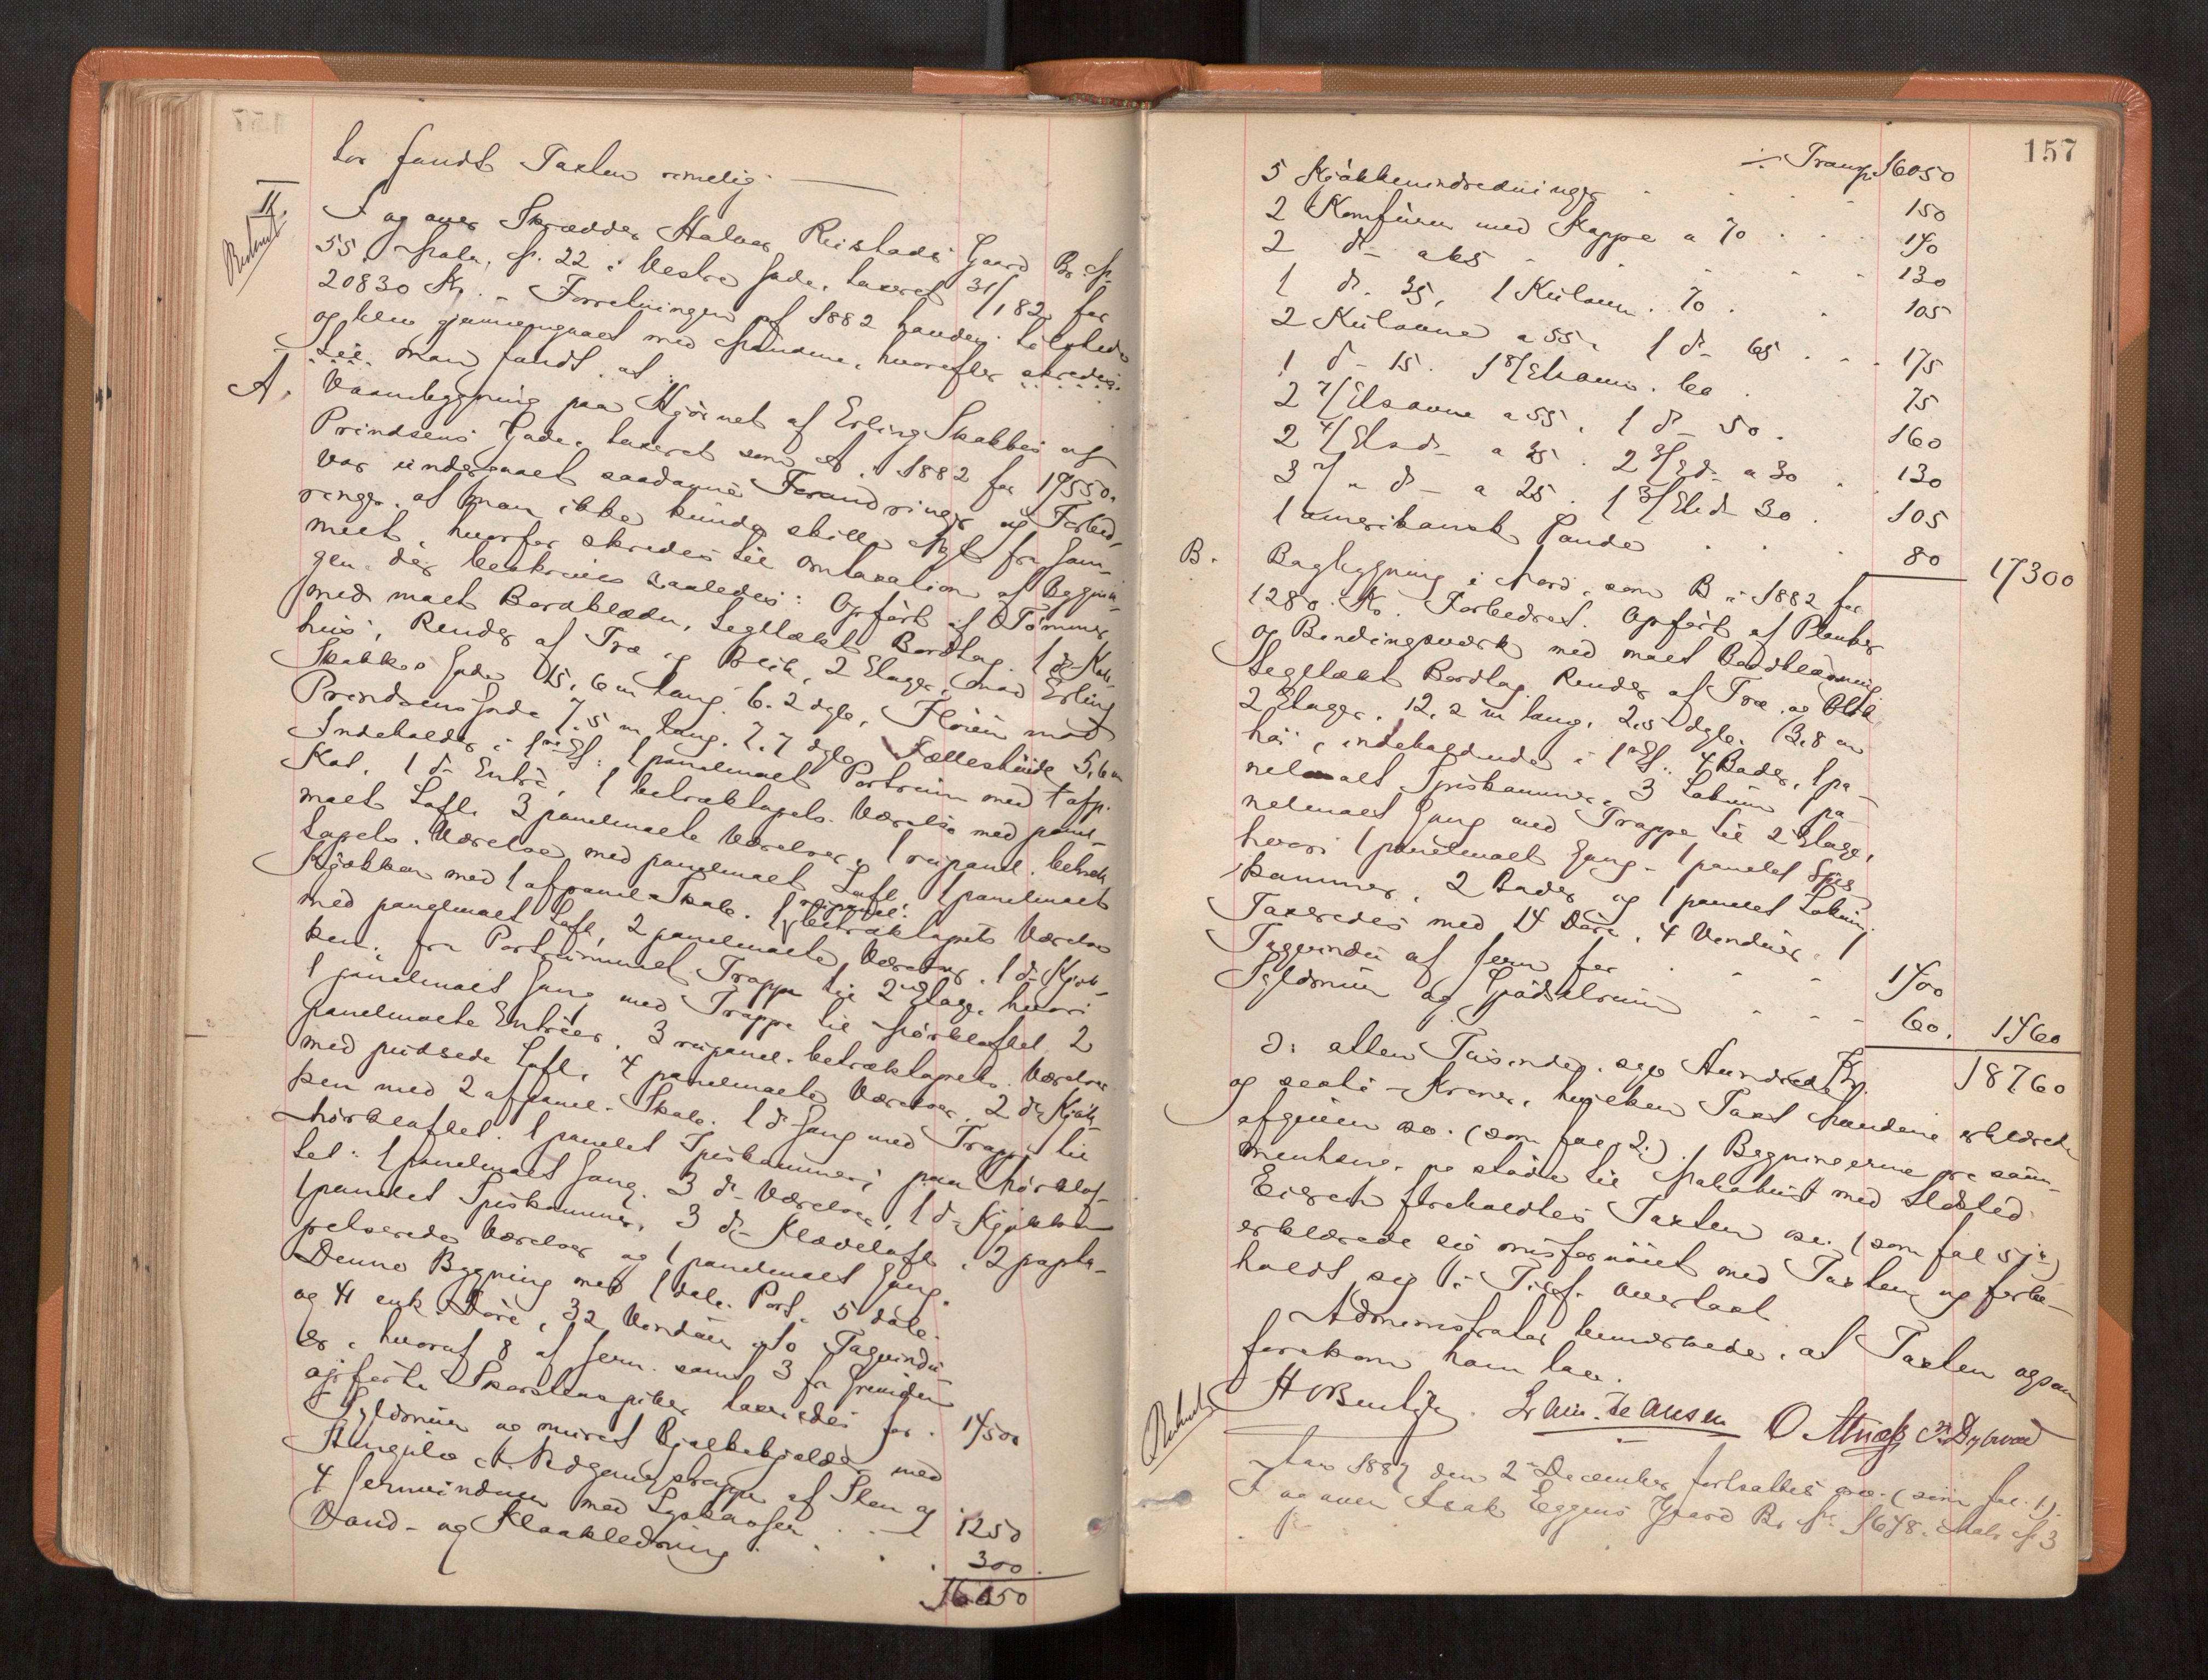 tør fandt Taxten rimelig.
II.
Betalt
I og over Skrædder Halvor Reistads Gaard Br. №
55, Matr. № 22 i Vestre Gade, taxeret 31/1 82 for
20830 Kr. – Forretningen af 1882 havdes tilstede
og blev gjennemgaaet med Mændene, hvorefter
man fandt, at
A. Vaanbygning paa Hjørnet af Erling Skakkes og
Prindsens Gade, taxeret som A i 1882 for 17550,
var undergaaet saadanne Forandringer og Forbed-
ringer, at man ikke kunde skille Nyt fra Gam-
melt, hvorfor skredes til Omtaxation af Bygnin-
gen, der beskrives saaledes: Opført af Tømmer
med malt Bordklædn., Tegllakt Bordtag, 1 d– Kok-
hus, Render af Træ og Blik, 2 Etager, mod Erling
Skakkes Gade 15,6 m lang, 6.2 dyb, Fløien mod
Prindsens Gade 7.5 m lang, 7.7 dyb, Fælleshøide 5,6 m
Indeholder i 1ste Et: 1 panelmalt Portrum med 1 afp.
Kot, 1 d– Entré, 1 betræktapets. Værelse med panel-
malt Loft, 3 panelmalte Værelser, 1 rupanel. betræk
tapets. Værelse med panelmalt Loft, 1 panelmalt
Kjøkken med 1 afpanel. Skab, 1 rupanel. betræktapets Værelse
med panelmalt Loft, 2 panelmalte Værelser, 1 d– Kjøk-
ken; fra Portrummet Trappe til 2den Etage, hvori
1 panelmalt Gang med Trappe til Mørkloftet, 2
panelmalte Entreer, 3 rupanel. betræktapets. Værelser
med pudsede Loft, 4 panelmalte Værelser, 2 d– Kjøk-
ken med 2 afpanel. Skab, 1 d– Gang med Trappe til
Mørkloftet, 1 panelet Spiskammer; paa Mørklof-
tet: 1 panelmalt Gang, 3 d– Værelser, 1 d– Kjøkken
1 panelet Spiskammer, 3 d– Klædeloft, 2 papta-
petserede Værelser og 1 panelmalt Gang.
Denne Bygning med 1 dob. Port, 5 dob.
og 41 enk. Døre, 32 Vinduer, 10 Tagvindu-
er, hvoraf 8 af Jern, samt 3 fra Grunden
opførte Skorstenspiber taxeredes for . 14500
Fyldmur og muret Bjelkekjelder med
Hengsler, Nedgangstrappe af Sten og
4 Jernvinduer med Lyskasser . . . 1250
Vand- og Kloakledning . . . 300.
16050
157
./. Transp. 16050
5 Kjøkkenindredninger . . . 150
2 Komfurer med Kappe a 70 . . . 140
2 d– a 65 . . . 130
1 d– 35, 1 Kulovn . 70 . . . 105
2 Kulovne a 55, 1 d– 65 . . . 175
1 d– 15. 1 8/Etsovn . 60 . . . 75
2 7/Etsovne a 55, 1 d– 50 . 160
2 4/Ets d– a 35. 2 3/E d– a 30 . . 130
3 2/ " d– a 25. 1 3/Et d– 30 . 105
1 amerikansk Pande . . . 80 17300
B. Bagbygning i Nord, som B i 1882 for
1280 Kr. Forbedret. Opført af Planker
og Bindingsværk med malt Bordklædning
Teglakt Bordtag, Render af Træ og Blik
2 Etager, 12,2 m lang, 2,5 dyb, 3,8 m
høi, indeholdende i 1ste Et: 4 Boder, 1 pa-
nelmalt Spiskammer, 3 Lokum, 1 pa-
nelmalt Gang med Trappe til 2 Etage,
hvori 1 panelmalt Gang, 1 panelet Spis-
kammer, 2 Boder og 1 panelet Lokum.
Taxeredes med 14 Døre, 4 Vinduer, 1
Tagvindu af Jern for . . . 1400
Fyldmur og Gjødselrum . . . 60. 1460
Kr. 18760
ɔ: atten Tusinde, syv Hundrede
og sexti – Kroner, hvilken Taxt Mændene erklærede
afgiven sc. (som fol. 2.). Bygningerne pr. sam-
menhæng. pr. stødte til Matrhus med Ildsted.
Eieren foreholdtes Taxten sc. (som fol. 5)
erklærede sig misfornøiet med Taxten og forbe-
holdt sig i Tilf. Overtaxt.
Administrator bemærkede, at Taxten ogsaa
forekom ham lav.
H O Bentzen. O. Dybvad
Betalt
Aar 1887 den 2den December fortsattes sc. (som fol. 1).
I og over Isak Eggens Gaard Br. №. 1648. Matr № 3